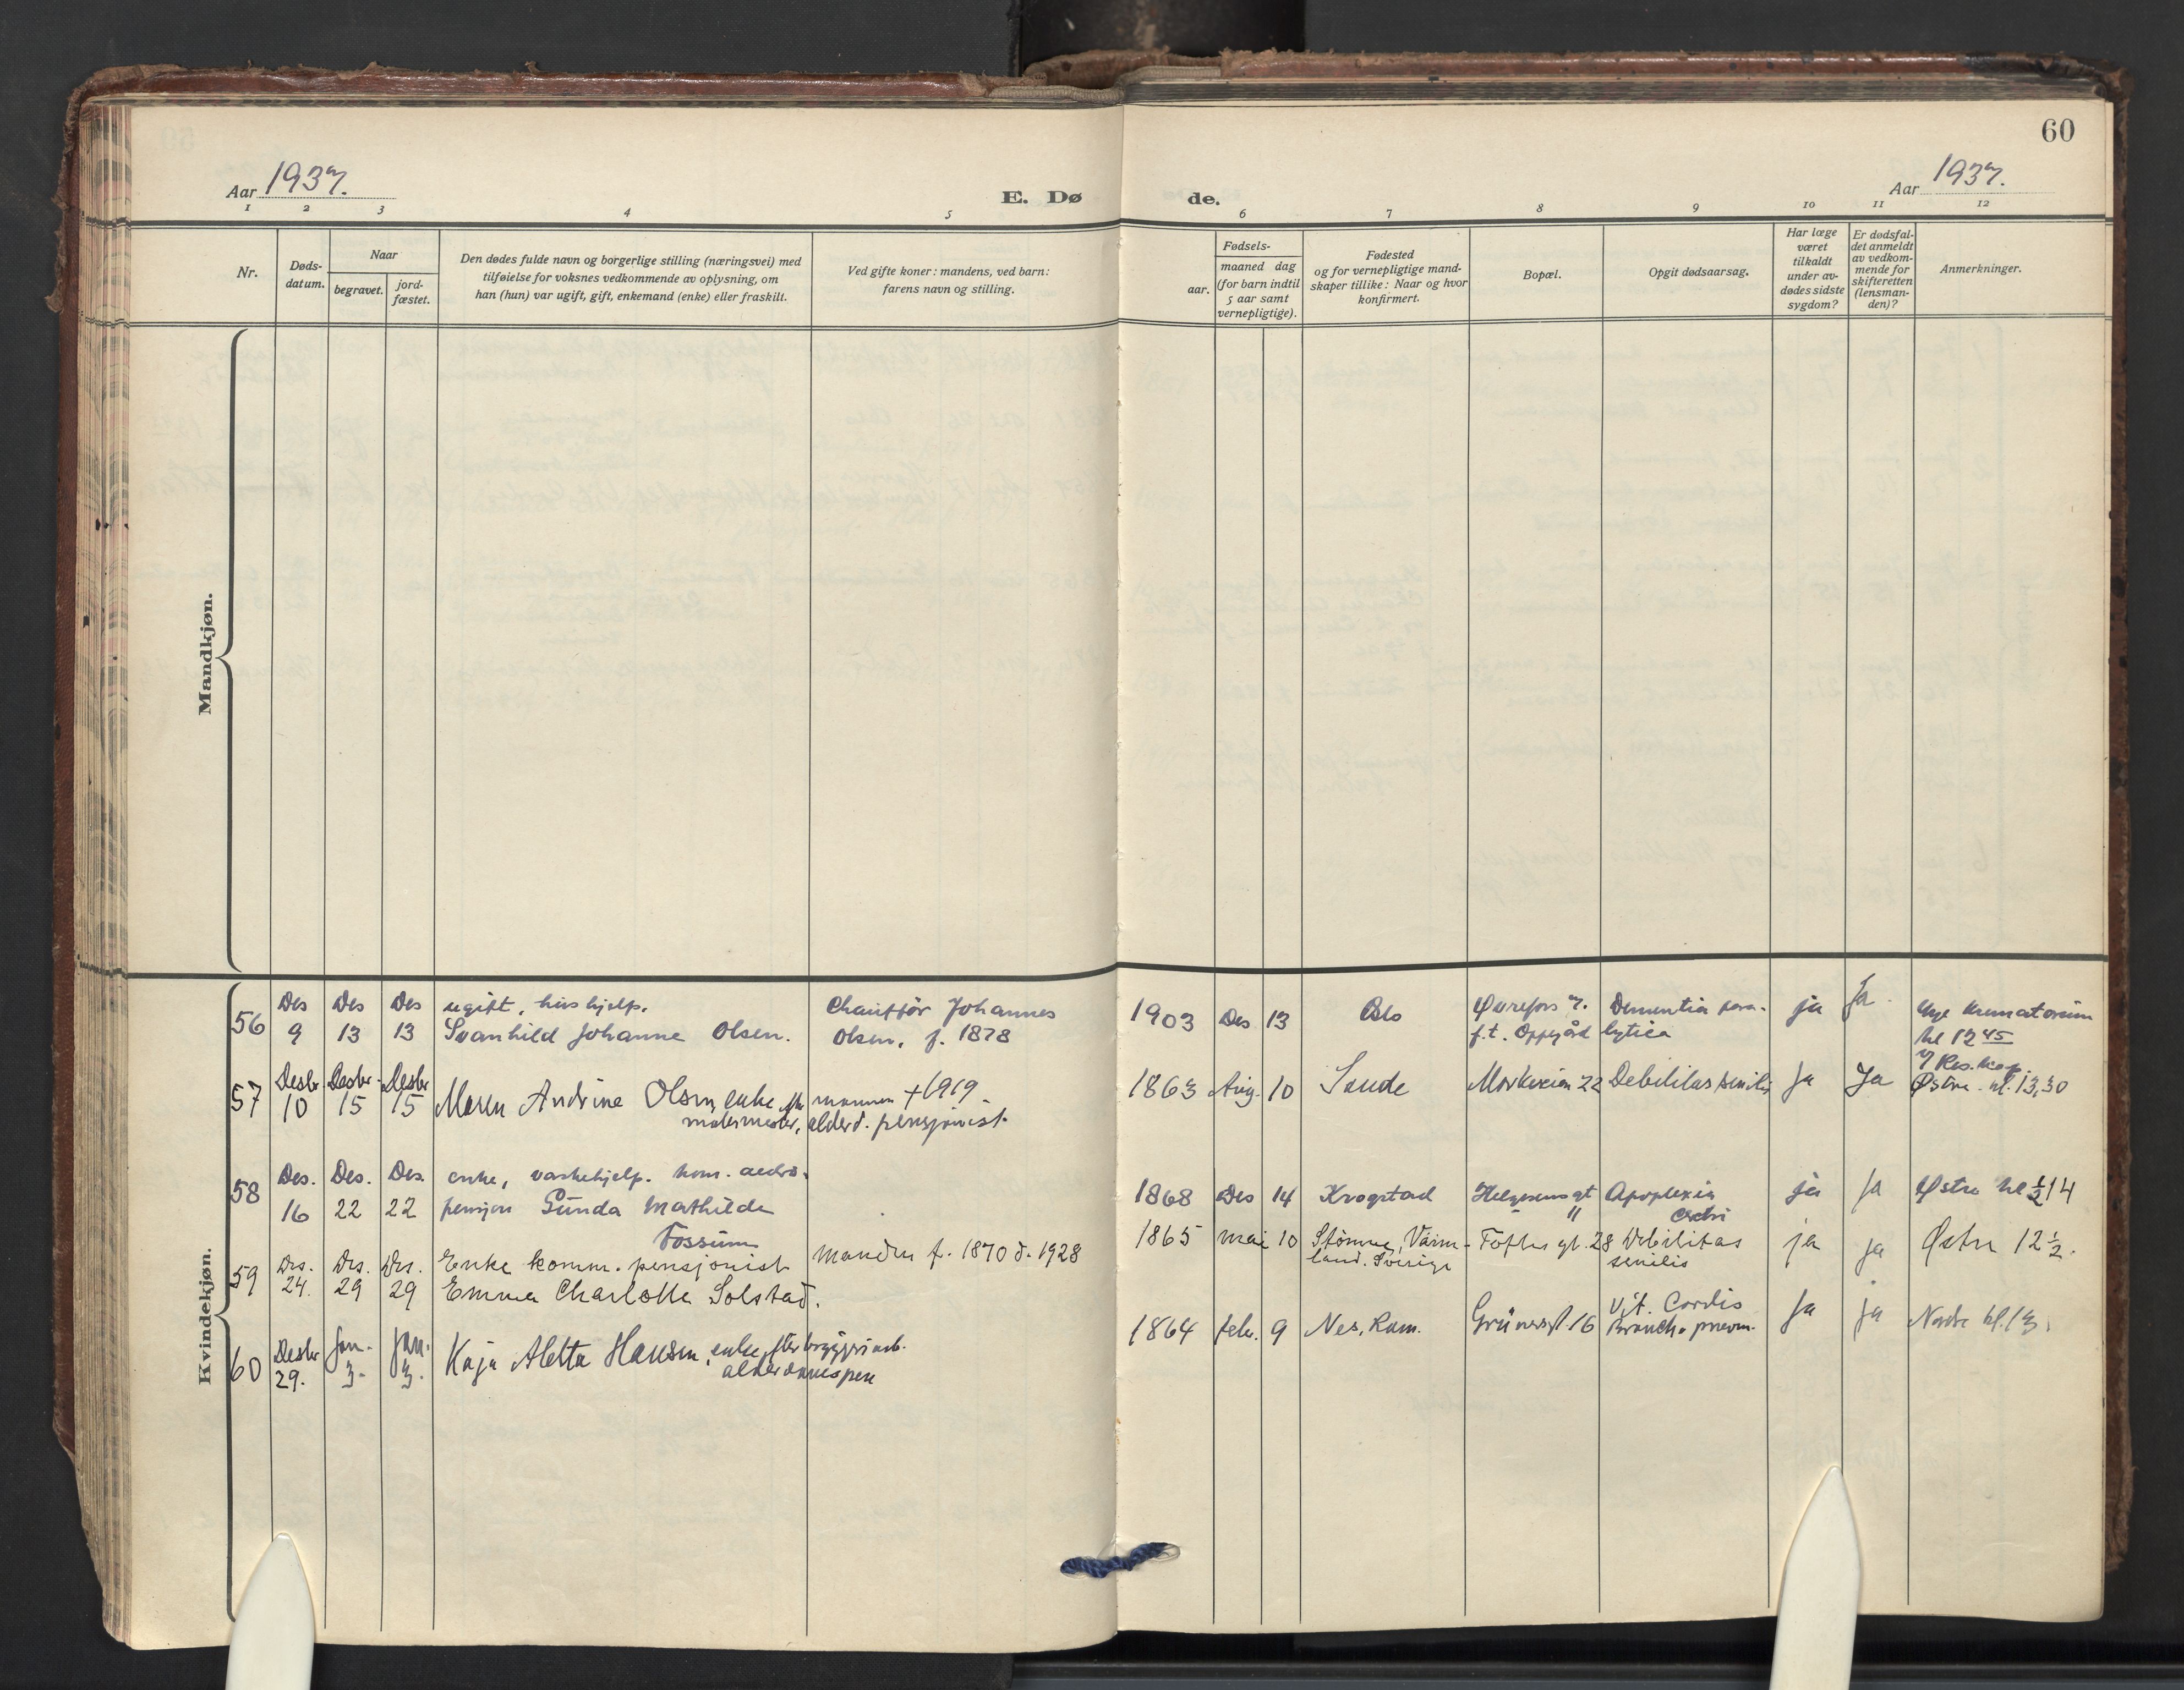 60
Aar 1937.
E. Dø
de.
Aar 1937.
1 2 3 4 5 6 7 8 9 10 11 12
Nr.
Døds-
datum.
Naar
begravet.
jord-
fæstet.
Den dødes fulde navn og borgerlige stilling (næringsvei) med
tilføielse for voksnes vedkommende av oplysning, om
han (hun) var ugift, gift, enkemand (enke) eller fraskilt.
Ved gifte koner: mandens, ved barn:
farens navn og stilling.
Fødsels-
aar.
maaned dag
(for barn indtil
5 aar samt
vernepligtige).
Fødested
og for vernepligtige mand-
skaper tillike: Naar og hvor
konfirmert.
Bopæl.
Opgit dødsaarsag.
Har læge
været
tilkaldt
under av-
dødes sidste
sygdom?
Er dødsfal-
det anmeldt
av vedkom-
mende for
skifteretten
(lensman-
den)?
Anmerkninger.
Mandkjøn.
Kvindekjøn.
56 Des 9 Des 13 Des 13
ugift, hushjelp.
Svanhild Johanne Olsen.
Chauffør Johannes
Olsen. f. 1878
1903 Des 13 Oslo
f.t. Oppegård
Dementia para-
lytica
ja Ja
Nye Krematorium
kl 12 45
57 Desbr 10 Desbr 15 Desbr 15
Maren Andrine Olsen, enke
malermester,
mannen + 1919
alderd. pensjonist.
1863 Aug. 10 Sande
22
Debilitas senilis
ja Ja
v/ Res. kap.
Østre kl. 13,30
58 Des. 16 Des. 22 Des. 22
enke, vaskehjelp. kom.
pensjon Gunda Mathilde
Fossum
1868 Des 14 Krogstad
Helgesens gt
"
Apoplexia
ja ja
Østre kl ½ 14
59 Des. 24. Des. 29 Des. 29
Enke komm. pensjonist
Emma Charlotte Solstad.
Manden f. 1870 d. 1928
1865 mai 10
Stömne, Värm-
land. Sverige
Toftes gt. 28
Debilitas
senilis
ja ja
Østre 12 ½.
60 Desbr 29. Jan. 3. Jan. 3.
Kaja Aletta Hansen, enke efter bryggeriarb.
1864 febr. 9
Nes, Rom.
Grünersgt. 16
Vit. Cordis
Bronch. pneum.
Ja ja
Nordre kl. 13.